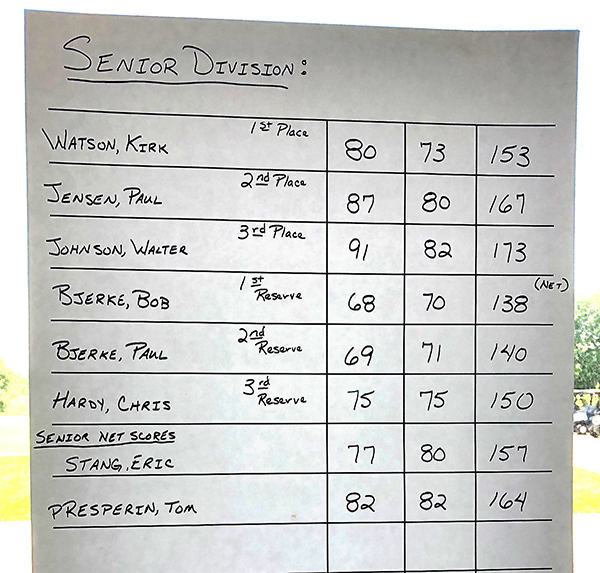 SENIOR DIVISION:
WATSON, KIRK 1st Place 80 73 153
JENSEN, PAUL 2nd Place 87 80 167
JOHNSON, WALTER 3rd Place 91 82 173
BJERKE, BOB 1st Reserve 68 70 138 (NET)
BJERKE, PAUL 2nd Reserve 69 71 140
HARDY, CHRIS 3rd Reserve 75 75 150
SENIOR NET SCORES
STANG, ERIC 77 80 157
PRESPERIN, TOM 82 82 164